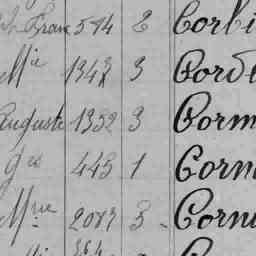 ph Franc 514 2 Corbi
Mie 1348 3 Corde
Auguste 1352 3 Corm
Ges 445 1 Corn
Mme 2087 3 Corn